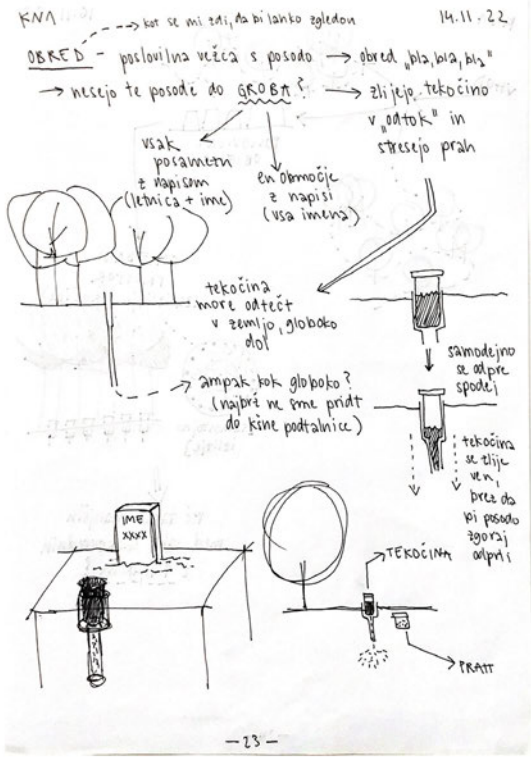 KNA
kot se mi zdi, da bi lahko zgledou
14.11.22
OBRED – poslovilna vežca s posodo → obred "bla, bla, bla"
→ nesejo te posode do GROBA? → zlijejo tekočino
v "odtok" in
stresejo prah
vsak
posametn
z napisom
(letnica + ime)
en območje
z napisi
(vsa imena)
tekočina
more odtečt
v zemljo, globoko
dol
ampak kok globoko?
(najbrž ne sme pridt
do kšne podtalnice)
samodejno
se odpre
spodej
tekočina
se zlije
ven,
brez da
bi posodo
zgoraj
odprli
IME
XXXX
TEKOČINA
PRAH
– 23 –